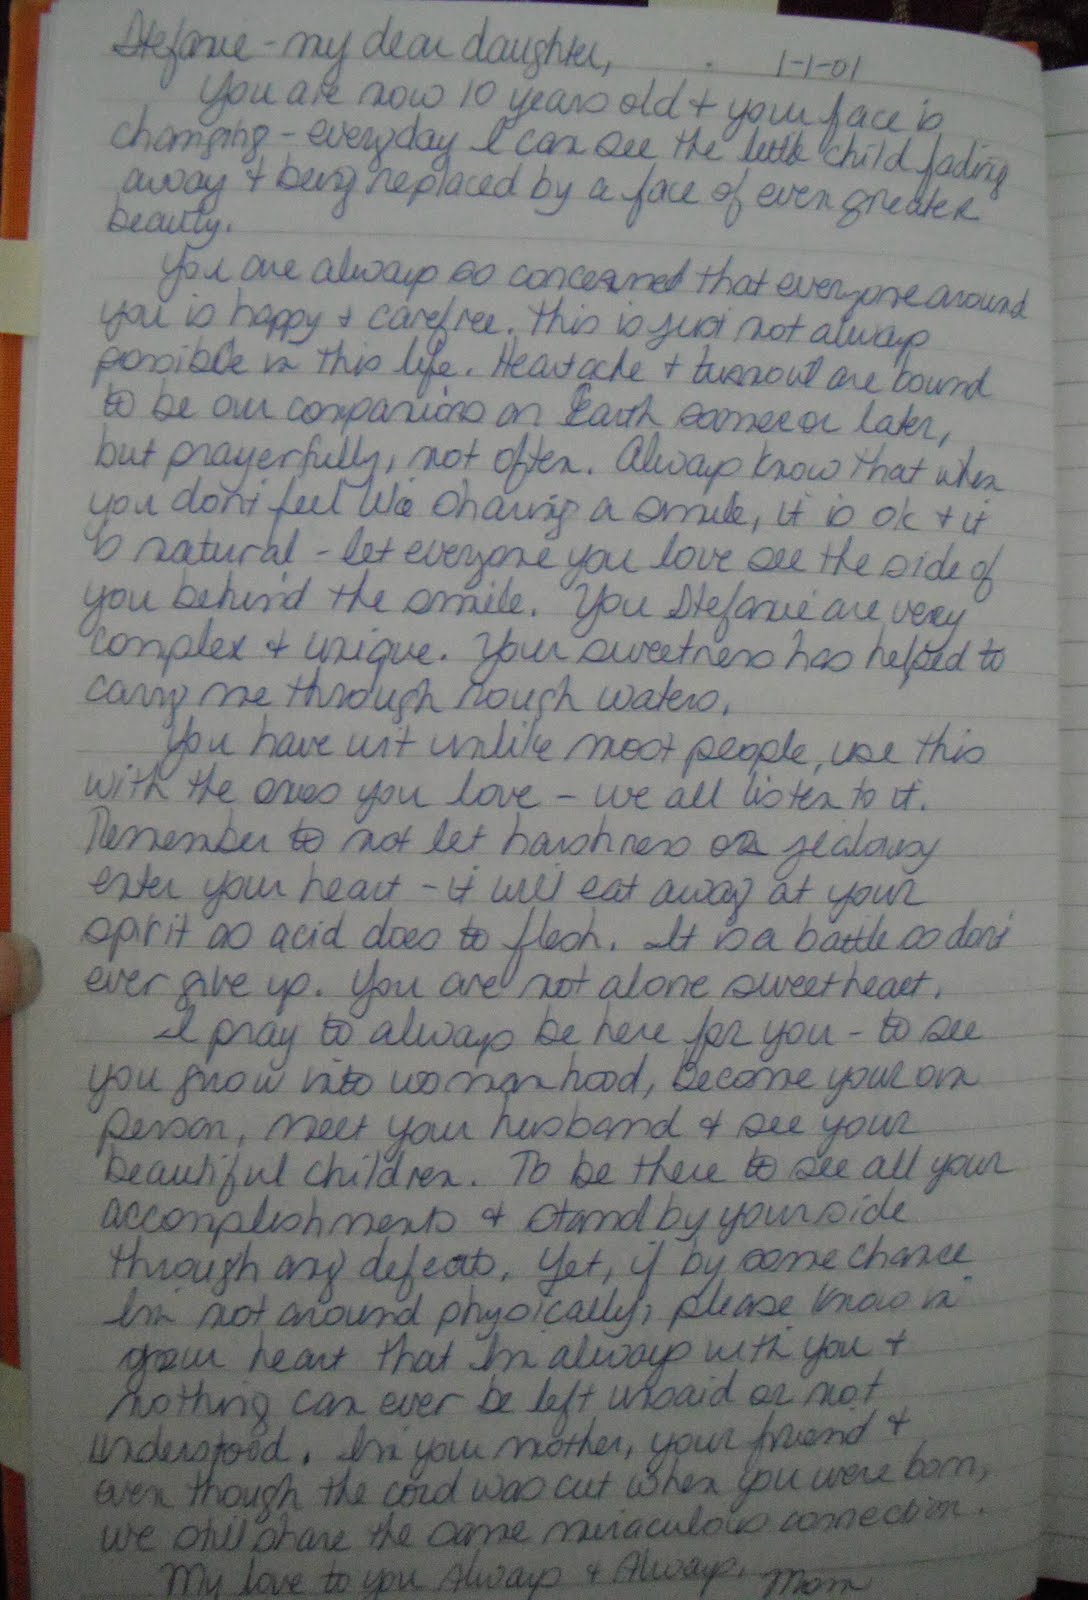 Stefanie - my dear daughter, 1-1-01
You are now 10 years old + your face is
changing - everyday I can see the little child fading
away + being replaced by a face of even greater
beauty.
You are always so concerned that everyone around
you is happy + carefree. This is just not always
possible in this life. Heartache + turmoil are bound
to be our companions on Earth sooner or later,
but prayerfully, not often. Always know that when
you don't feel like sharing a smile, it is ok + it
is natural - let everyone you love see the side of
you behind the smile. You Stefanie are very
complex + unique. Your sweetness has helped to
carry me through rough waters.
You have wit unlike most people, use this
with the ones you love - we all listen to it.
Remember to not let harshness or jealousy
enter your heart - it will eat away at your
spirit as acid does to flesh. It is a battle so don't
ever give up. You are not alone sweetheart.
I pray to always be here for you - to see
you grow into womanhood, become your own
person, meet your husband + see your
beautiful children. To be there to see all your
accomplishments + stand by your side
through any defeats. Yet, if by some chance
I'm not around physically, please know in
your heart that I'm always with you +
nothing can ever be left unsaid or not
understood. I'm your mother, your friend +
even though the cord was cut when you were born,
we still share the same miraculous connection.
My love to you Always + Always, Mom